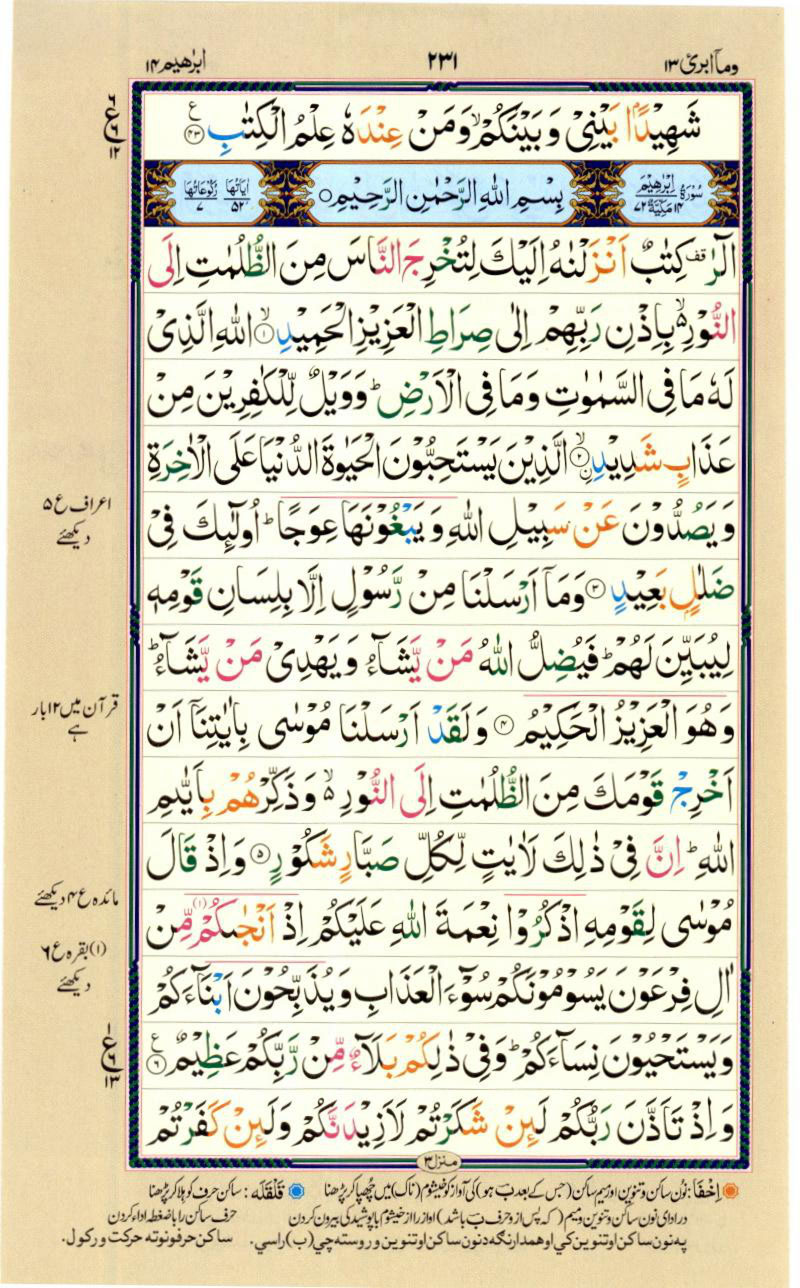 وماۤ ابرئ ۱۳
۲۳۱
ابرٰهیم ۱۴
شَهِیْدًۢا بَیْنِیْ وَبَیْنَكُمْ ۙ وَمَنْ عِنْدَهٗ عِلْمُ الْكِتٰبِ ﴿۴۳﴾ ع
ع ۶ ۱۲
سُوْرَةُ اِبْرٰهِیْمَ ۱۴ مَكِّیَّةٌ ۷۲
بِسْمِ اللّٰهِ الرَّحْمٰنِ الرَّحِیْمِ ۝
اٰیَاتُهَا ۵۲ رُكُوْعَاتُهَا ۷
الٓرٰ ۫ قف كِتٰبٌ اَنْزَلْنٰهُ اِلَیْكَ لِتُخْرِجَ النَّاسَ مِنَ الظُّلُمٰتِ اِلَی
النُّوْرِ ۙ۬ بِاِذْنِ رَبِّهِمْ اِلٰی صِرَاطِ الْعَزِیْزِ الْحَمِیْدِ ۙ﴿۱﴾ اللّٰهِ الَّذِیْ
لَهٗ مَا فِی السَّمٰوٰتِ وَمَا فِی الْاَرْضِ ؕ وَوَیْلٌ لِّلْكٰفِرِیْنَ مِنْ
عَذَابٍ شَدِیْدِ ۙ﴿۲﴾ ِ۟الَّذِیْنَ یَسْتَحِبُّوْنَ الْحَیٰوةَ الدُّنْیَا عَلَی الْاٰخِرَةِ
وَیَصُدُّوْنَ عَنْ سَبِیْلِ اللّٰهِ وَیَبْغُوْنَهَا عِوَجًا ؕ اُولٰٓئِكَ فِیْ
اعراف ع ۵
دیکھئے
ضَلٰلٍۭ بَعِیْدٍ ﴿۳﴾ وَمَاۤ اَرْسَلْنَا مِنْ رَّسُوْلٍ اِلَّا بِلِسَانِ قَوْمِهٖ
لِیُبَیِّنَ لَهُمْ ؕ فَیُضِلُّ اللّٰهُ مَنْ یَّشَآءُ وَیَهْدِیْ مَنْ یَّشَآءُ ؕ
وَهُوَ الْعَزِیْزُ الْحَكِیْمُ ﴿۴﴾ وَلَقَدْ اَرْسَلْنَا مُوْسٰی بِاٰیٰتِنَاۤ اَنْ
قرآن میں ۱۲ بار
ہے
اَخْرِجْ قَوْمَكَ مِنَ الظُّلُمٰتِ اِلَی النُّوْرِ ۙ۬ وَذَكِّرْهُمْ بِاَیّٰىمِ
اللّٰهِ ؕ اِنَّ فِیْ ذٰلِكَ لَاٰیٰتٍ لِّكُلِّ صَبَّارٍ شَكُوْرٍ ﴿۵﴾ وَاِذْ قَالَ
مائدہ ع ۴ دیکھئے
مُوْسٰی لِقَوْمِهِ اذْكُرُوْا نِعْمَةَ اللّٰهِ عَلَیْكُمْ اِذْ اَنْجٰىكُمْ (۱) مِّنْ
(۱) بقرہ ع ۶
دیکھئے
اٰلِ فِرْعَوْنَ یَسُوْمُوْنَكُمْ سُوْٓءَ الْعَذَابِ وَیُذَبِّحُوْنَ اَبْنَآءَكُمْ
وَیَسْتَحْیُوْنَ نِسَآءَكُمْ ؕ وَفِیْ ذٰلِكُمْ بَلَآءٌ مِّنْ رَّبِّكُمْ عَظِیْمٌ ﴿۶﴾ ع
۱ ع ۶ ۱۳
وَاِذْ تَاَذَّنَ رَبُّكُمْ لَئِنْ شَكَرْتُمْ لَاَزِیْدَنَّكُمْ وَلَئِنْ كَفَرْتُمْ
منزل ۳
اِخْفَا: نُون ساکن و تنوین اور میم ساکن (جس کے بعد بؔ ہو) کی آواز کو خیشوم (ناک) میں چھپا کر پڑھنا قَلْقَلَه: ساکن حرف کو ہلا کر پڑھنا
در ادای نون ساکن و تنوین و میم (که پس از و حرف ب باشد) اواز را از خیشوم با پوشیدگی بیرون کردن حرف ساکن را با ضغطه ادا کردن
په نون ساکن او تنوین کي او همدارنګه د نون ساکن او تنوین وروسته چي (ب) راسي. ساکن حرفونو ته حرکت ورکول.